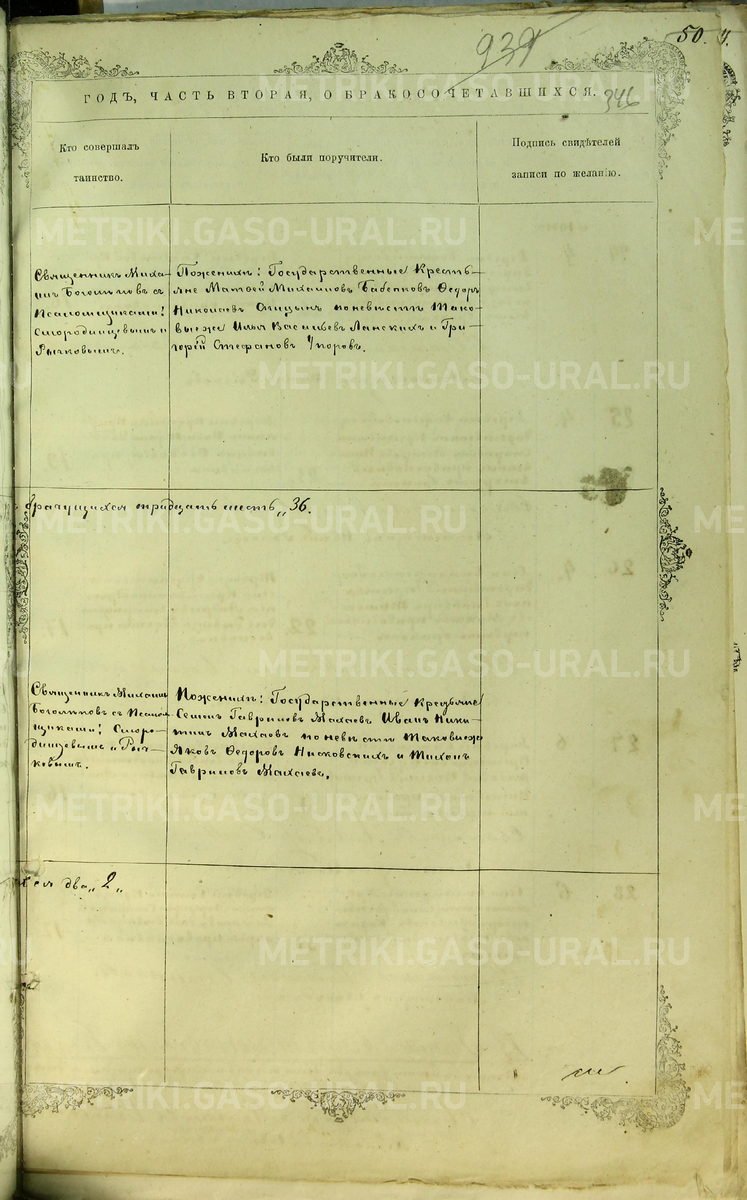 939
50.
346
ГОДЪ, ЧАСТЬ ВТОРАЯ, О БРАКОСОЧЕТАВШИХСЯ.
Кто совершалъ
таинство.
Кто были поручители.
Подпись свидѣтелей
записи по желанію.
Священникъ Миха-
илъ Боголѣповъ съ
Псаломщиками:
Смородинцевымъ и
Рычковымъ.
Пожених: Государственные Кресть-
яне Матѳей Михайловъ Бабенковъ Ѳедоръ
Николаевъ по невѣстѣ Тако-
вые же Илья Васильевъ Ланскихъ и Гри-
горей Стефановъ Упоровъ.
брачущихся тридцать шесть „36.
Священникъ Михаилъ
Боголѣповъ съ Псалом-
щиками: Сморо-
динцевымъ и Рыч-
ковымъ.
Пожених: Государственные Крестьяне
Семенъ Гавриловъ Махаевъ Иванъ Ники-
тинъ Махаевъ по невѣсте таковые же
Яковъ Ѳедоровъ Нисковскихъ и Тихонъ
Гавриловъ Махаевъ.
ся два „2„
METRIKI.GASO-URAL.RU